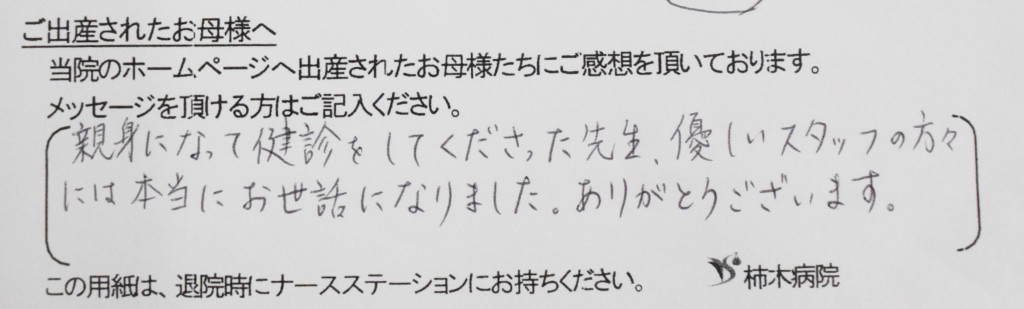 ご出産されたお母様へ
当院のホームページへ出産されたお母様たちにご感想を頂いております。
メッセージを頂ける方はご記入ください。
親身になって健診をしてくださった先生、優しいスタッフの方々
には本当にお世話になりました。ありがとうございます。
この用紙は、退院時にナースステーションにお持ちください。
柿木病院